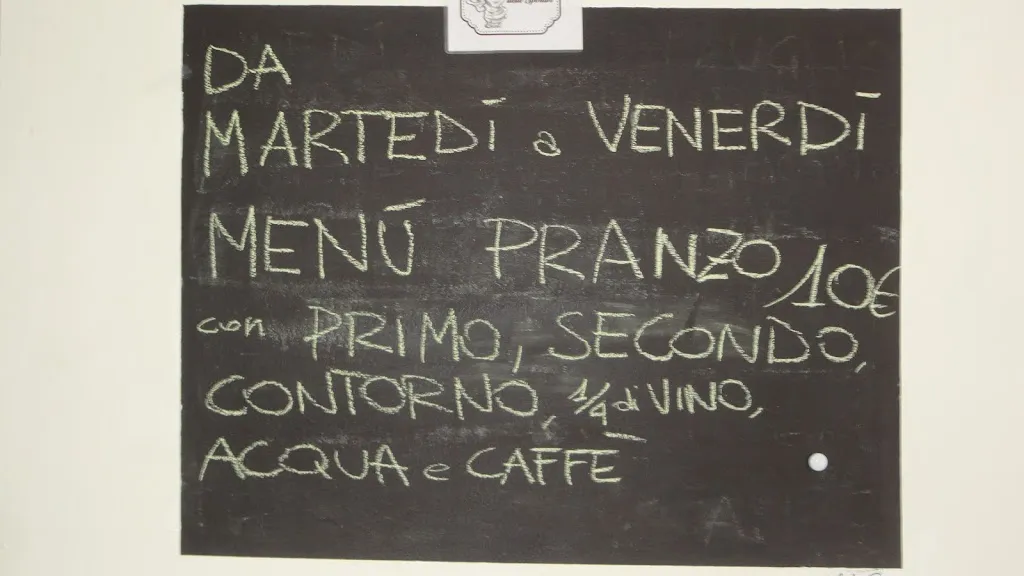 DA
MARTEDÌ a VENERDÌ
MENÚ PRANZO 10€
con PRIMO, SECONDO,
CONTORNO, 1/4 di VINO,
ACQUA e CAFFÈ